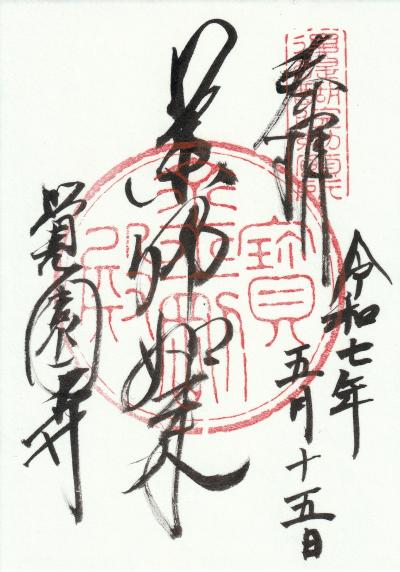 奉拝
令和七年
五月十五日
薬師如来
覚園寺
寶